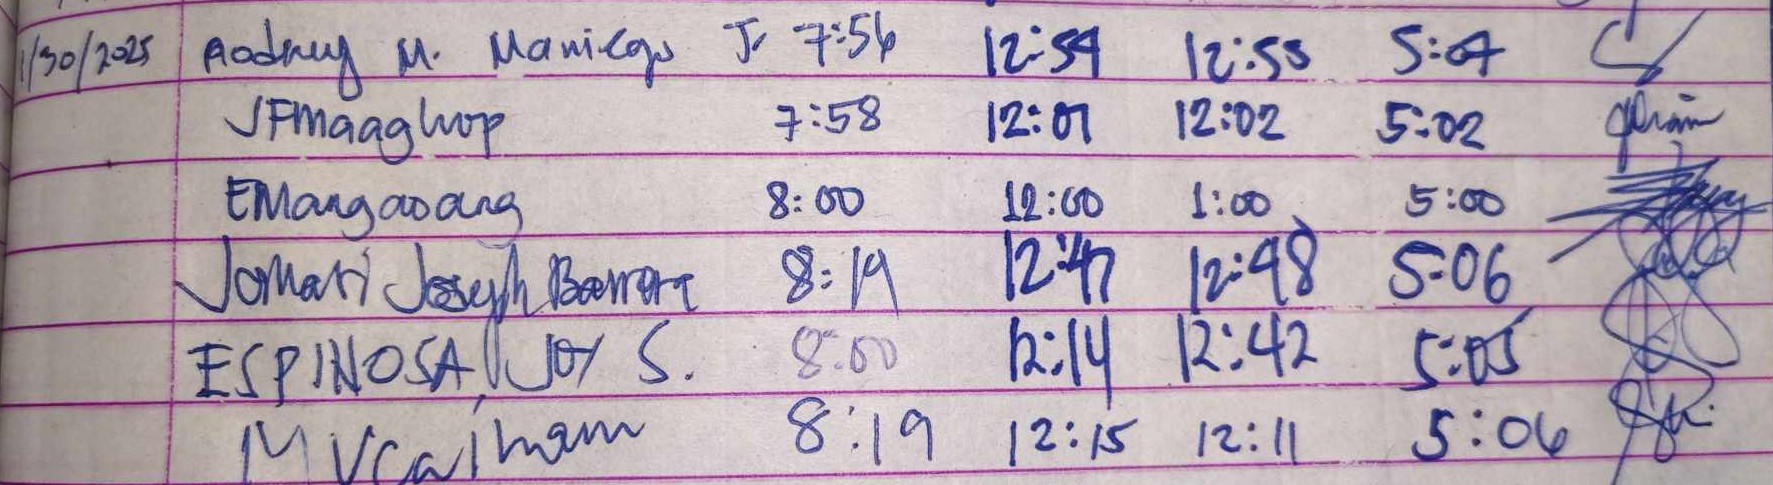 1/30/2025 Aodrey M. Maniego Jr 7:56 12:54 12:55 5:07
JFMaaghop 7:58 12:01 12:02 5:02
EMangaoang 8:00 12:00 1:00 5:00
Jomari Joseph Barrera 8:19 12:47 12:48 5:06
ESPINOSA, JOY S. 8:00 12:14 12:42 5:05
8:19 12:15 12:11 5:06